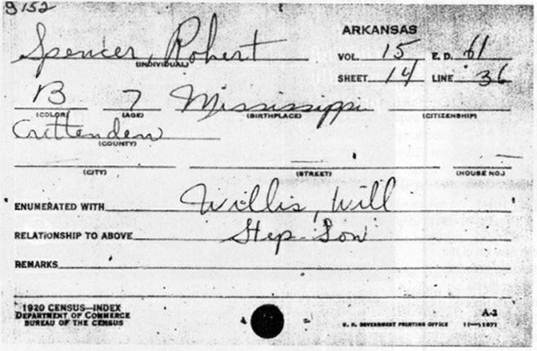 S152
ARKANSAS
Spencer, Robert
(INDIVIDUAL)
VOL. 15 E. D. 61
SHEET 14 LINE 36
B 7 Mississippi
(COLOR) (AGE) (BIRTHPLACE) (CITIZENSHIP)
Crittenden
(COUNTY)
(CITY) (STREET) (HOUSE NO.)
ENUMERATED WITH Willis, Will
RELATIONSHIP TO ABOVE Step-Son
REMARKS
1920 CENSUS—INDEX
DEPARTMENT OF COMMERCE
BUREAU OF THE CENSUS
A-3
U. S. GOVERNMENT PRINTING OFFICE